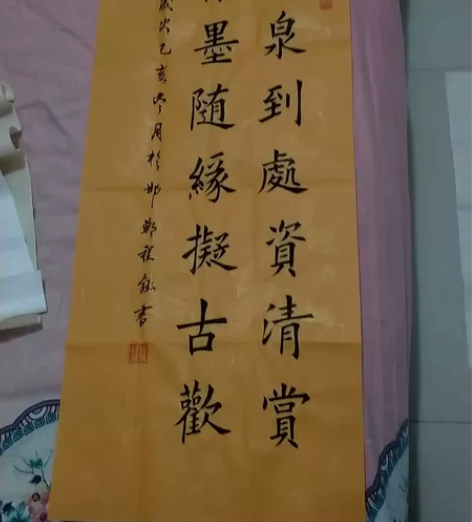 泉到處資清賞
墨随緣擬古歡
歲次乙亥冬月於邯鄭程書